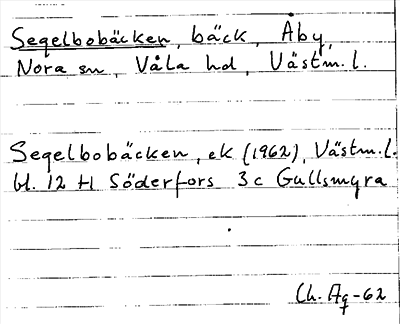 Segelbobäcken, bäck, Åby,
Nora sn, Våla hd, Västm. l.
Segelbobäcken, ek (1962), Västm. l.
bl. 12 H Söderfors 3c Gullsmyra
Ch. Ag -62